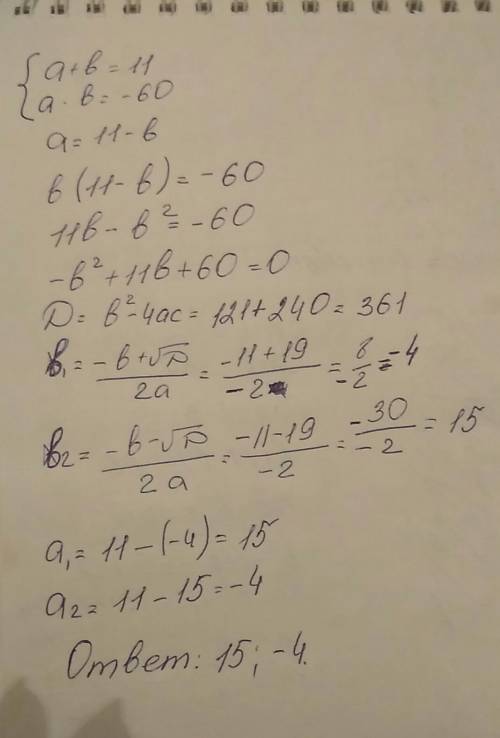 { a + b = 11
a · b = -60
a = 11 - b
b (11 - b) = -60
11b - b² = -60
-b² + 11b + 60 = 0
D = b² - 4ac = 121 + 240 = 361
b₁ = (-b + √D)/(2a) = (-11 + 19)/(-2) = 8/(-2) = -4
b₂ = (-b - √D)/(2a) = (-11 - 19)/(-2) = (-30)/(-2) = 15
a₁ = 11 - (-4) = 15
a₂ = 11 - 15 = -4
Ответ: 15; -4.